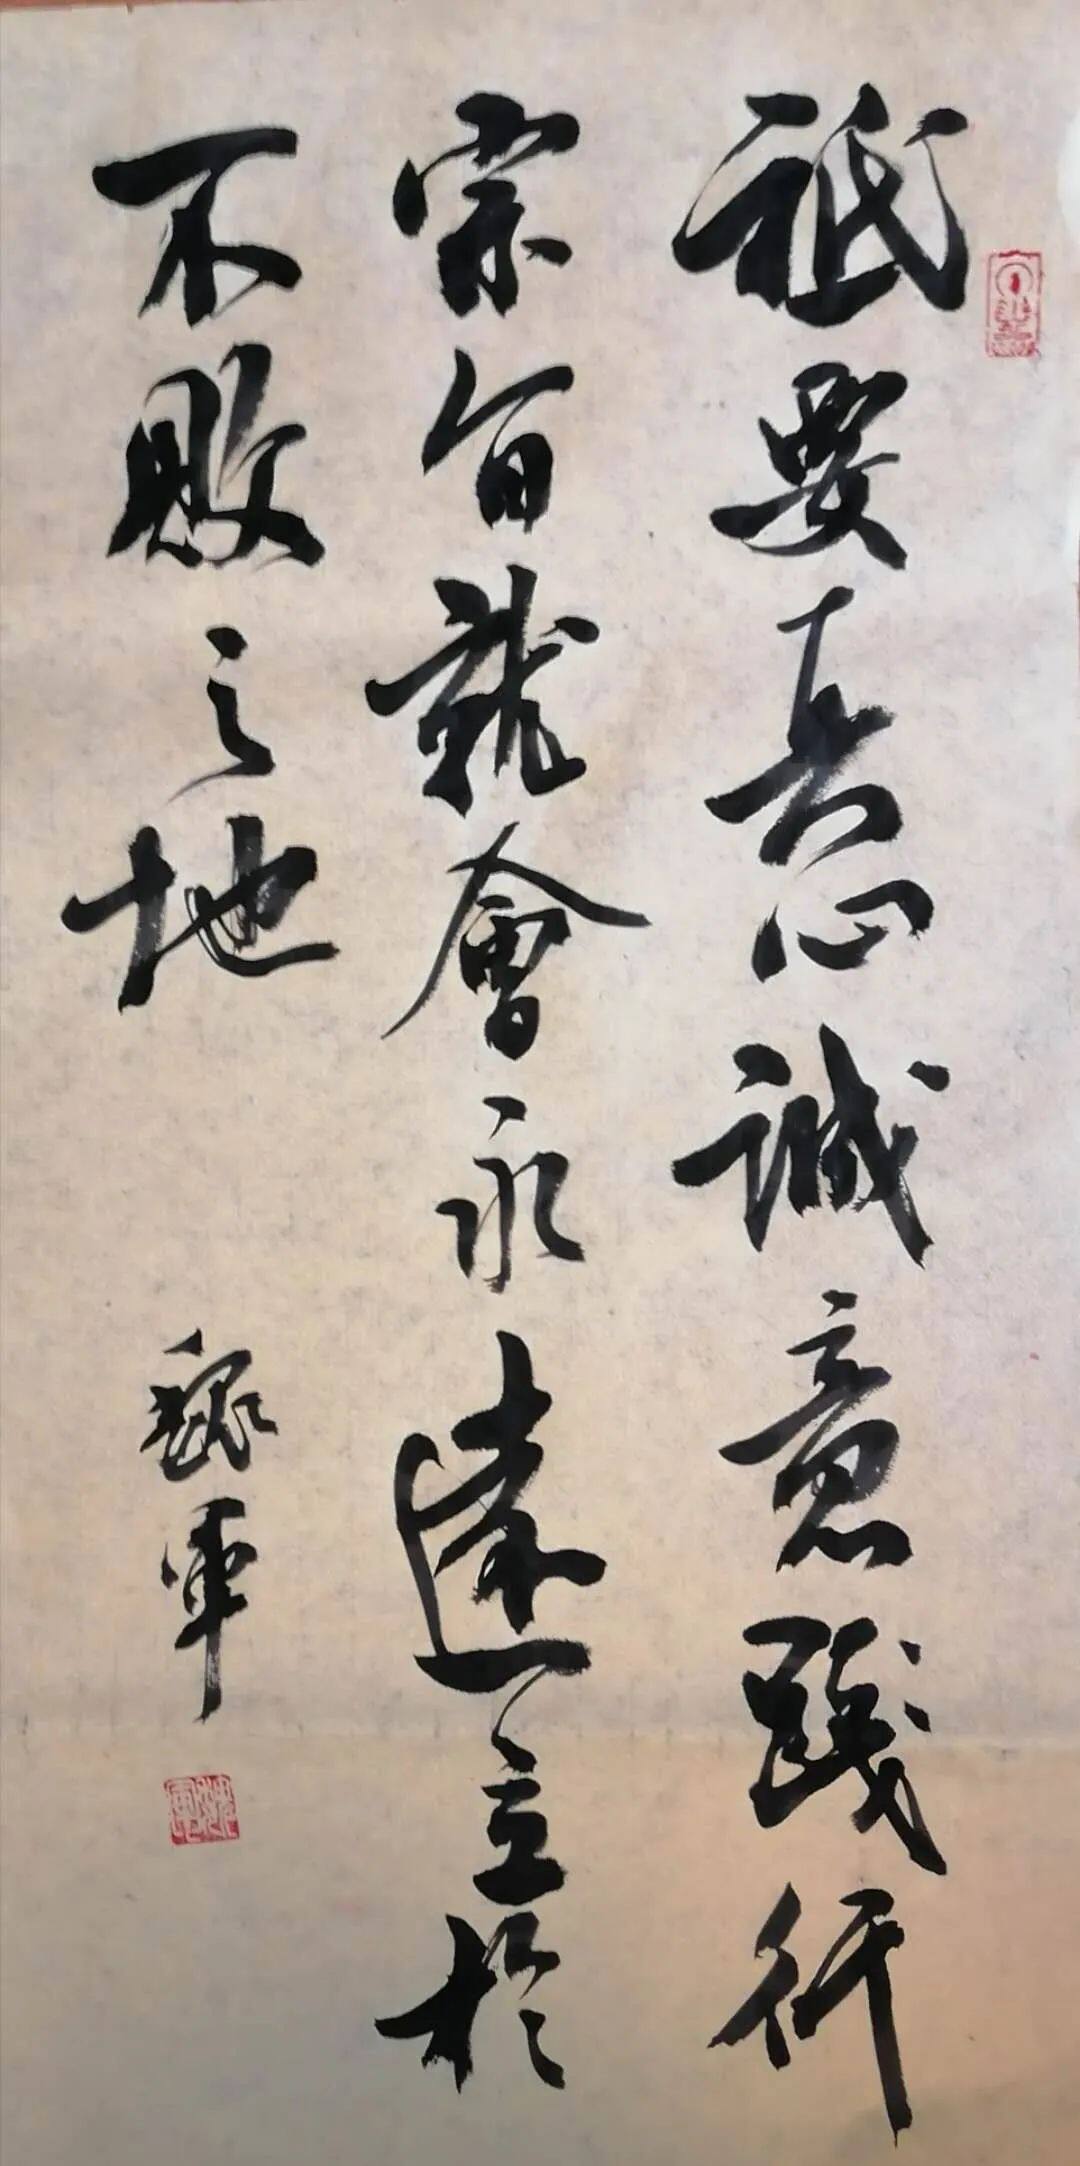 祗要真心誠意踐行
宗旨就會永遠立於
不敗之地
魏軍